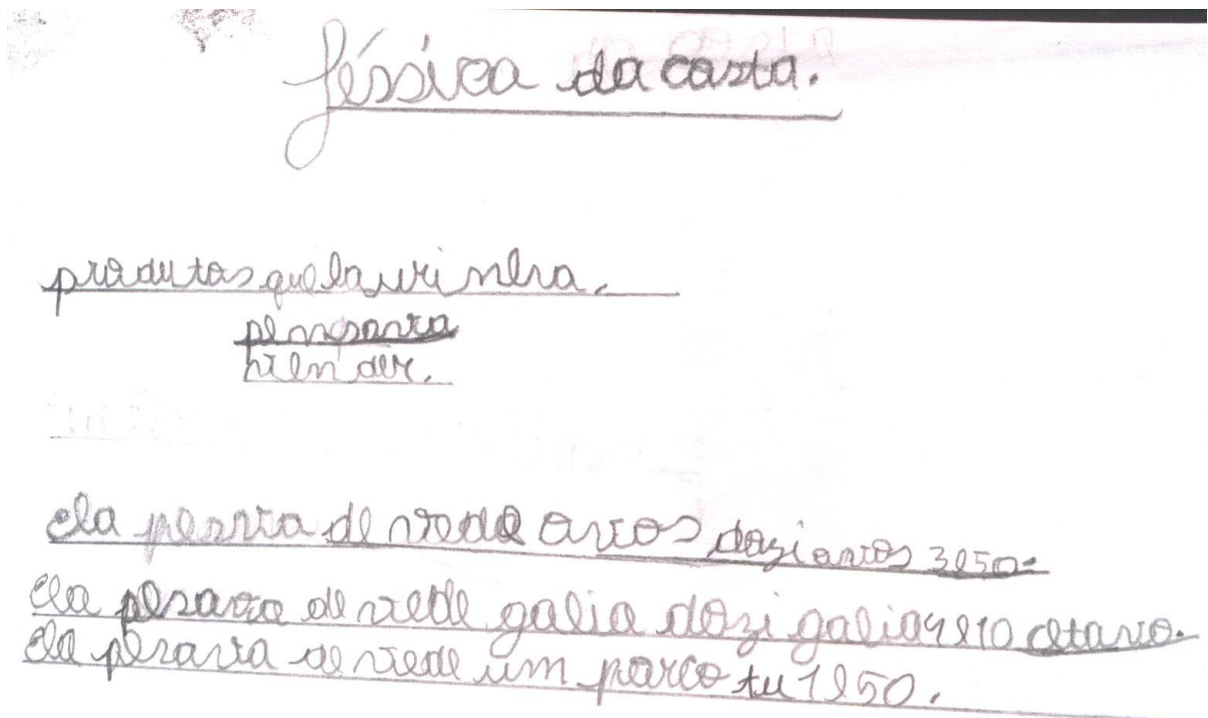 Jéssica da costa.
produtos que la vri nha.
pemsava
vien der.
ela pesava de vede ovos dozi ovos 3e50.
ela pesava de vede galia dozi galia 4e10 cetavo.
ela pesava de vede um porco tu 1e50.